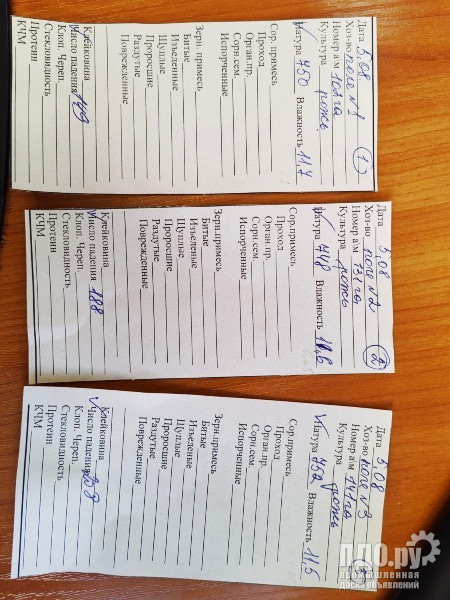 Дата 5.08
Хоз-во поле №1
Номер а/м 103 га
Культура рожь
1
Сор. примесь
Проход
Орган.пр.
Сорн.сем.
Испорченные
Натура 750 Влажность 11,7
Зерн. примесь
Битые
Изъеденные
Щуплые
Проросшие
Раздутые
Поврежденные
Клейковина
Число падения 149
Клоп. Череп.
Стекловидность
Протеин
КЧМ
Дата 5.08
Хоз-во поле №2
Номер а/м 131 га
Культура рожь
2
Сор.примесь
Проход
Орган.пр.
Сорн.сем.
Испорченные
Натура 748 Влажность 11,6
Зерн.примесь
Битые
Изъеденные
Щуплые
Проросшие
Раздутые
Поврежденные
Клейковина
Число падения 188
Клоп. Череп.
Стекловидность
Протеин
КЧМ
Дата 5.08
Хоз-во поле №3
Номер а/м 141 га
Культура рожь
3
Сор.примесь
Проход
Орган.пр.
Сорн.сем.
Испорченные
Натура 752 Влажность 11,5
Зерн.примесь
Битые
Изъеденные
Щуплые
Проросшие
Раздутые
Поврежденные
Клейковина
Число падения 208
Клоп. Череп.
Стекловидность
Протеин
КЧМ
ПДО.ру
промышленная
доска объявлений